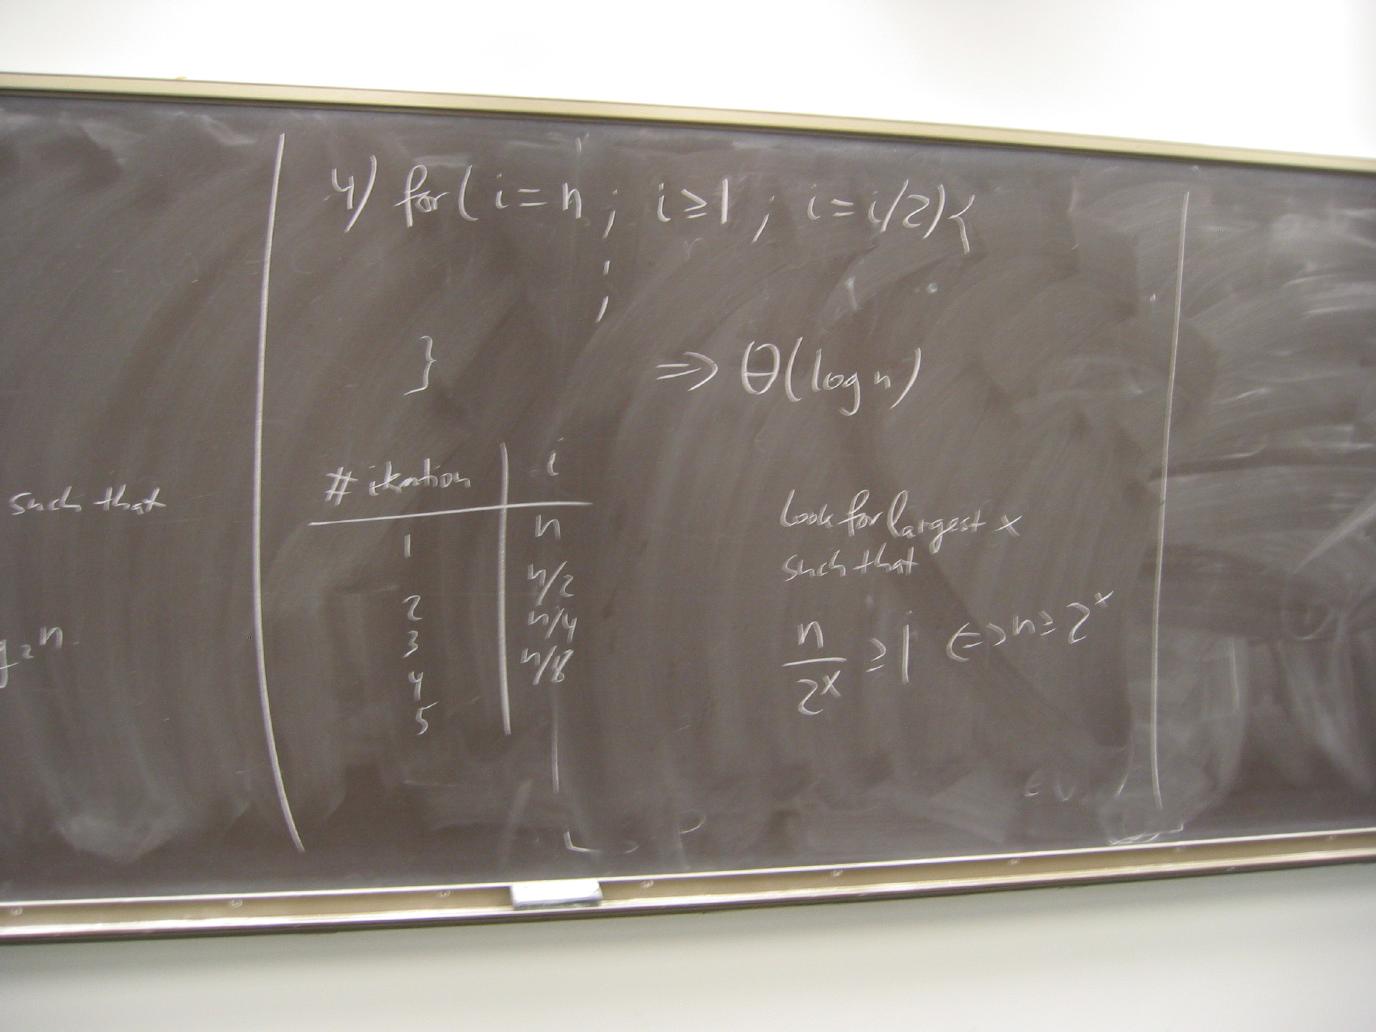 such that
g₂n
4) for( i=n ; i≥1 ; i=i/2){
;
}
⇒ Θ(log n)
# iteration | i
1 | n
2 | n/2
3 | n/4
4 | n/8
5
Look for largest x
such that
n/2ˣ ≥ 1 ⇔ n ≥ 2ˣ